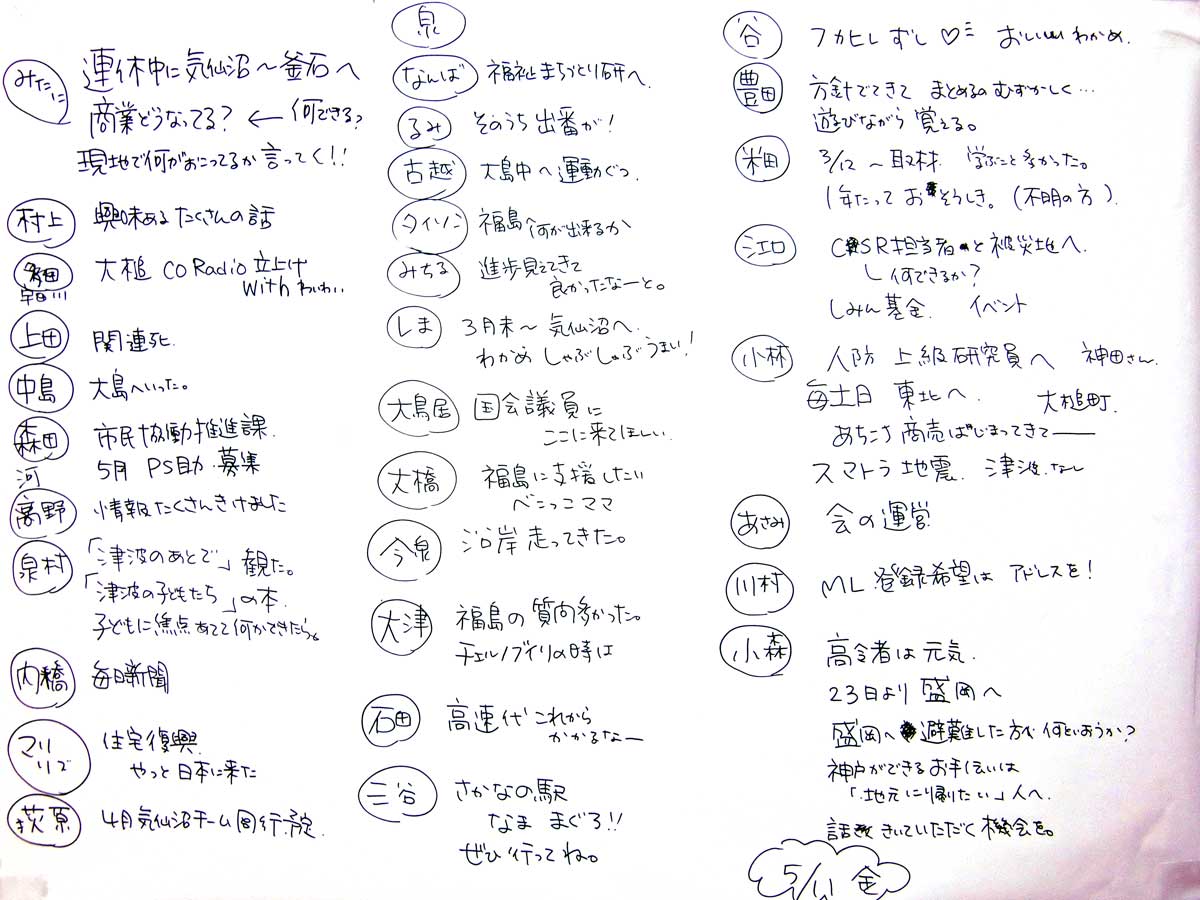 みたに
連休中に気仙沼〜釜石へ
商業どうなってる？ ← 何できる？
現地で何がおこってるか言ってく！！
村上 興味あるたくさんの話
大槌 CO Radio 立上げ
早川 With わいわい
上田 関連死
中島 大島へいった。
森田 市民協働推進課
河 5月 PS助 募集
高野 情報たくさんきけました
泉村 「津波のあとで」観た。
「津波の子どもたち」の本.
子どもに焦点あてて何かできたら。
内橋 毎日新聞
マリリズ 住宅復興.
やっと日本に来た
荻原 4月気仙沼チーム同行予定
泉
なんば 福祉まちづくり研へ.
るみ そのうち出番が！
古越 大島中へ運動ぐつ.
タイソン 福島何が出来るか
みちる 進歩見えてきて
良かったなーと。
しま 3月末〜気仙沼へ.
わかめしゃぶしゃぶうまい！
大鳥居 国会議員に
ここに来てほしい.
大橋 福島に支援したい
べこっこママ
今泉 沿岸走ってきた。
大津 福島の質問多かった。
チェルノブイリの時は
石田 高速代これから
かかるなー
三谷 さかなの駅
なま まぐろ！！
ぜひ行ってね。
谷 フカヒレずし♡ おいしいわかめ.
豊田 方針でてきて まとめるのむずかしく…
遊びながら覚える。
米田 3/12〜取材 学ぶこと多かった。
1年たっておそうしき。（不明の方）
江口 CSR担当者と被災地へ.
└何できるか？
しみん基金. イベント
小林 人防 上級研究員へ 神田さん.
毎土日 東北へ. 大槌町.
あちこち商売はじまってきて──
スマトラ地震. 津波.なし
あさみ 会の運営
川村 ML登録希望は アドレスを！
小森 高令者は元気.
23日より盛岡へ
盛岡へ避難した方で何といあうか？
神戸ができるお手伝いは
「地元に帰りたい」人へ.
話をきいていただく機会を。
5/11 金